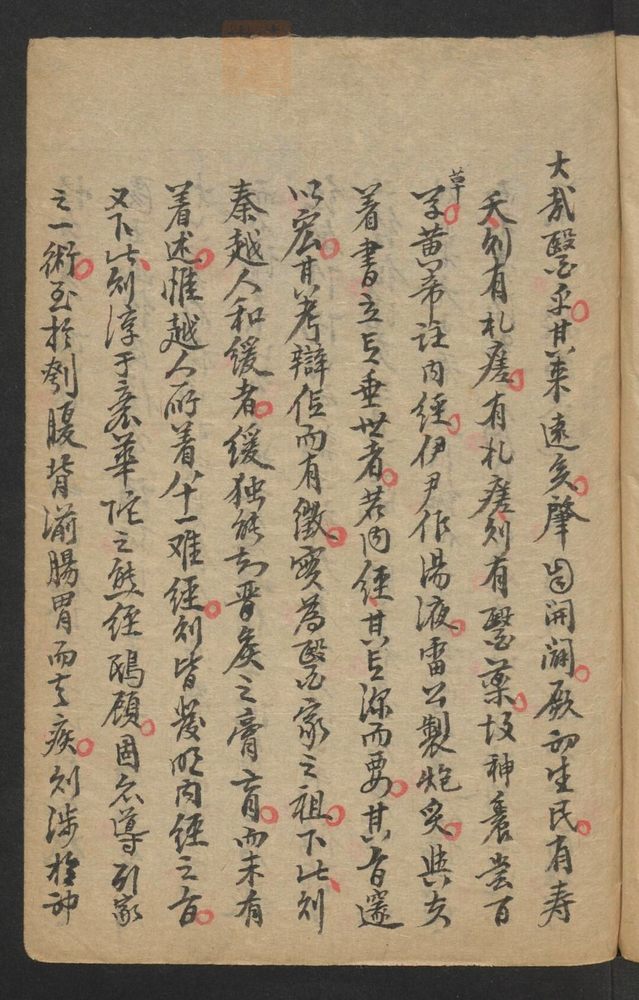 大哉醫乎其來遠矣肇自開闢厥初生民有寿
夭則有札瘥有札瘥則有醫藥故神農嘗百
草
黄帝註内經伊尹作湯液雷公製炮炙與夫
着書立言垂世者若内經其言深而要其旨邃
以宏其考辯信而有徵實為醫家之祖下此則
秦越人和緩者緩独能知晋矦之膏肓而未有
着述惟越人所着八十一难經則皆發明内經之旨
又下此則淳于意華佗之熊經鴟顧固亦導引家
之一術至於刳腹背湔腸胃而去疾則涉於神